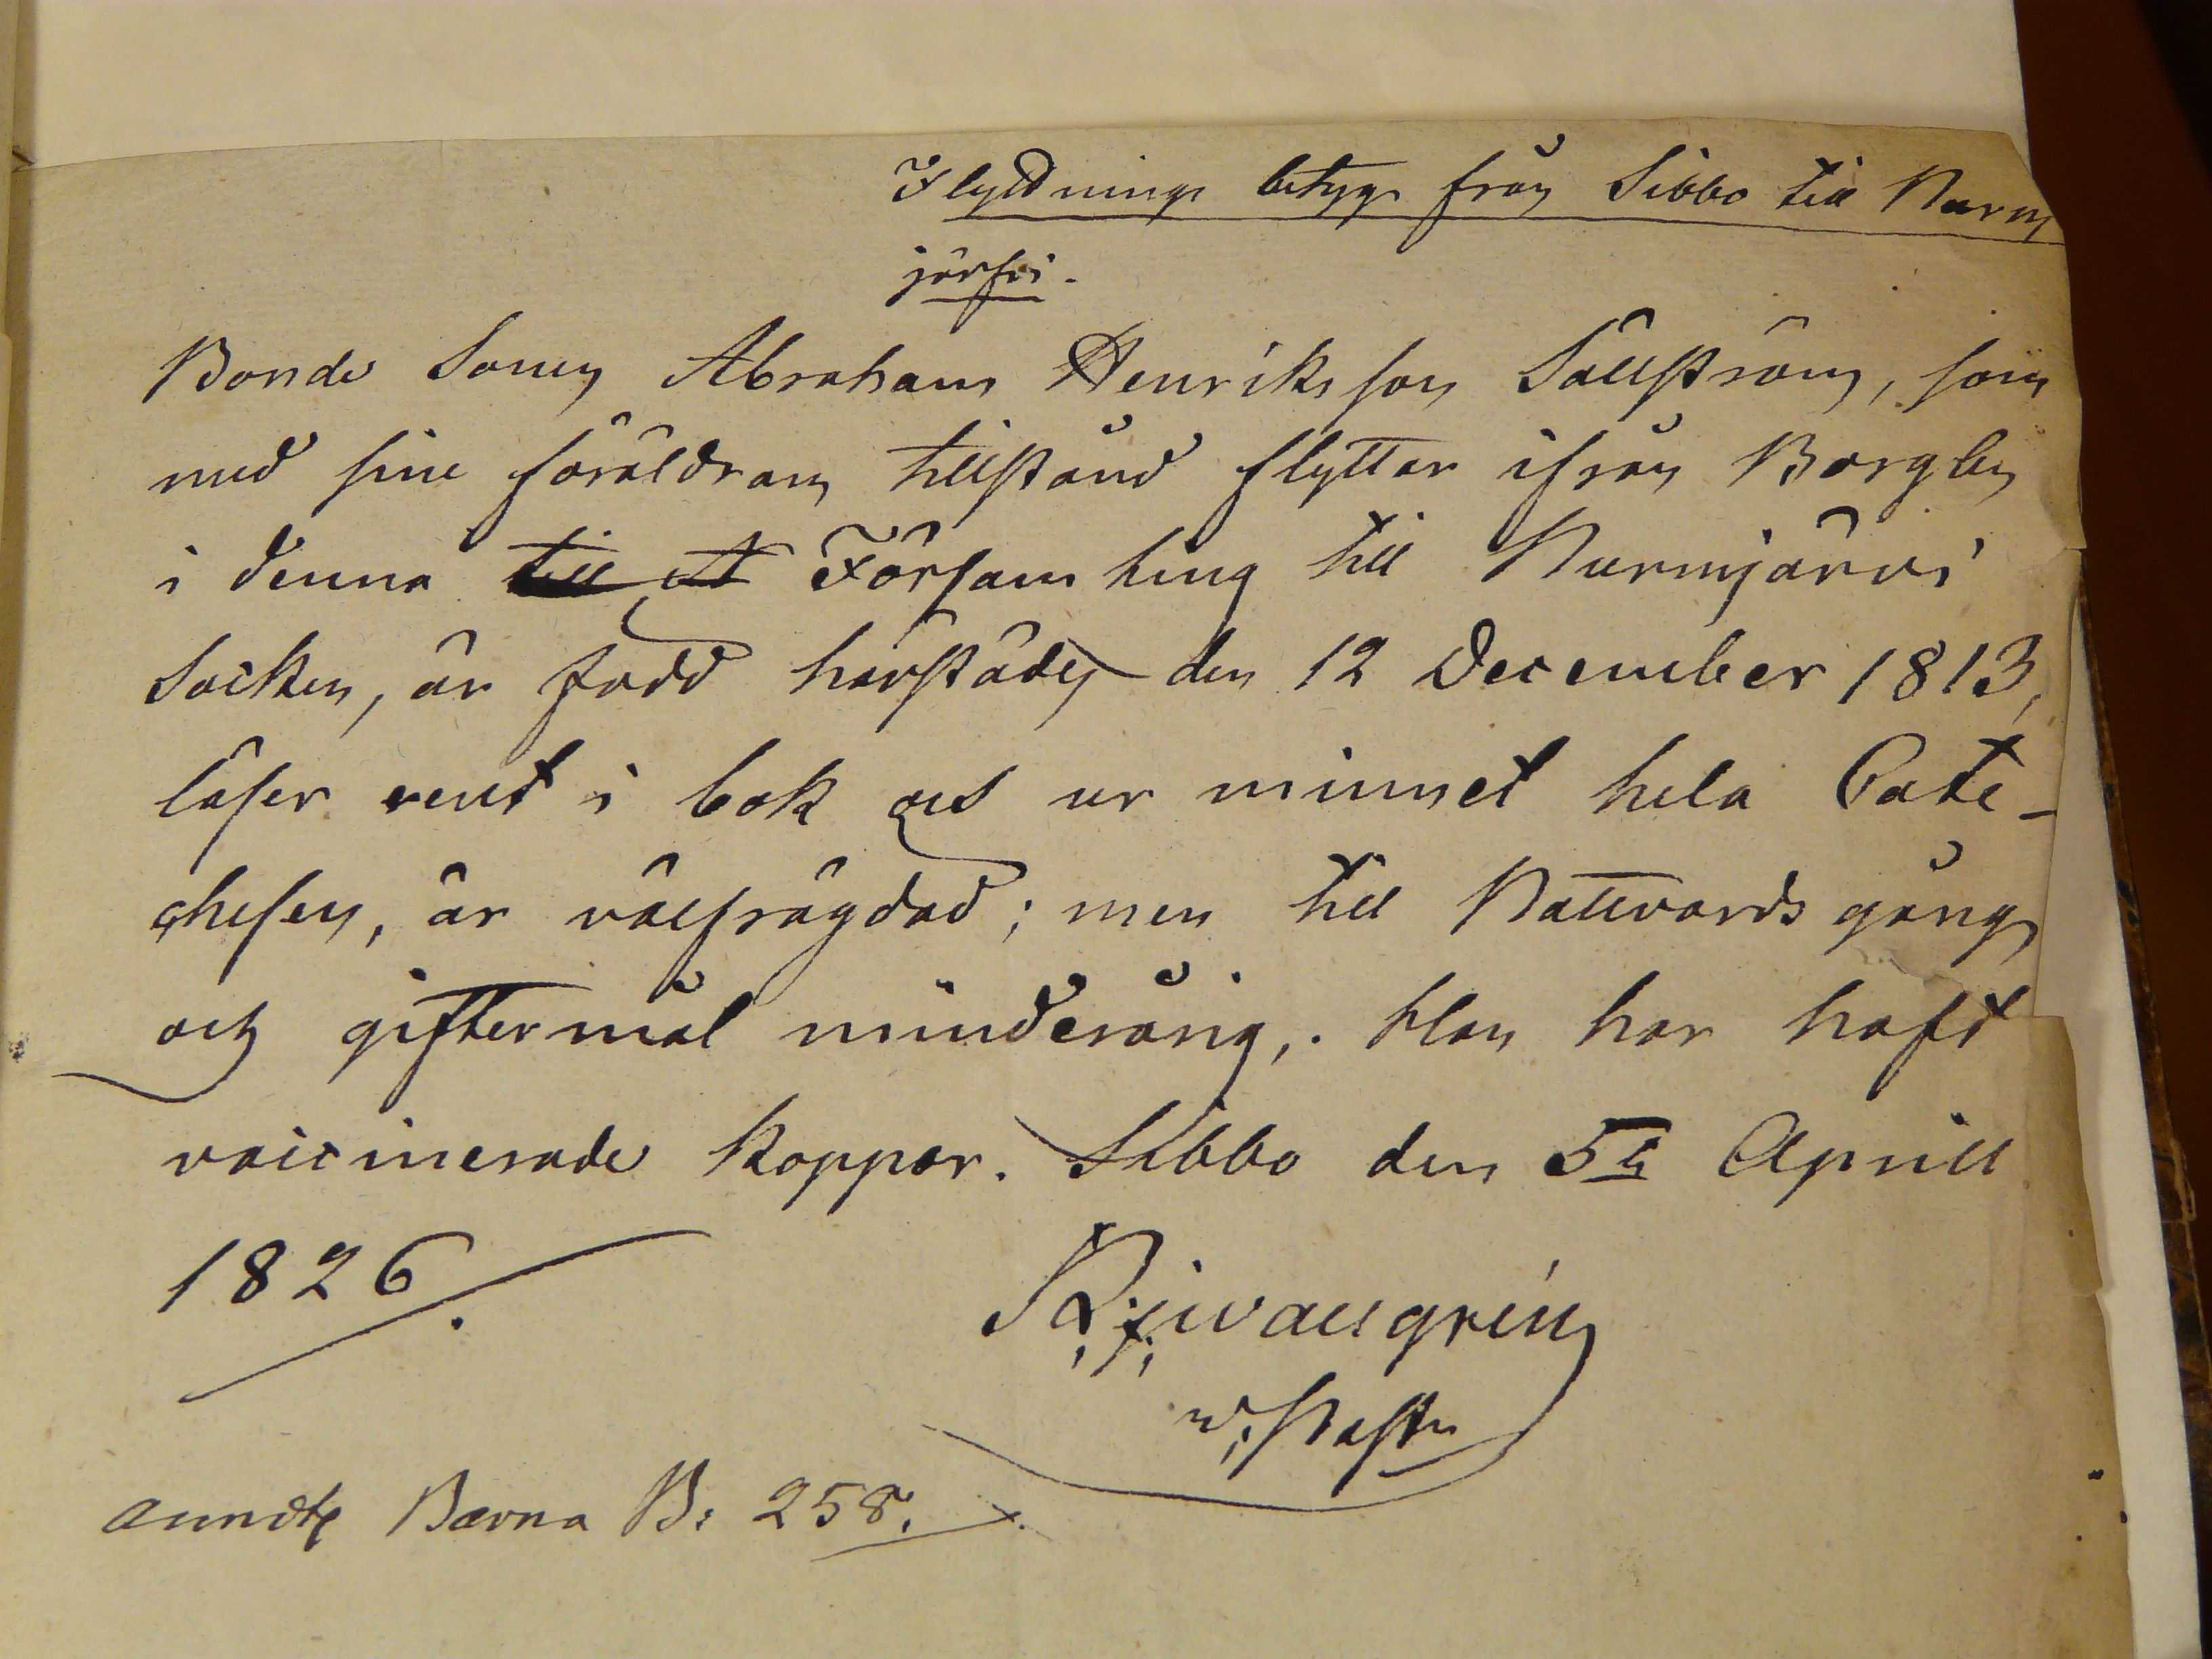 Flyttnings betyg från Sibbo till Nurm
järfvi.
Bonde Sonen Abraham Henriksson Sällström, som
med sine föräldrars tillstånd flyttar ifrån Borgby
i denna till et Församling till Nurmijärvi
Socken, är född härstädes den 12 December 1813,
läser rent i bok och ur minnet hela Cate-
chesen, är välfrägdad; men till Nattvards gång
och giftermål minderårig,. Han har haft
vaccinerade koppor. Sibbo den 5te Aprill
1826.
w. Past.
Barna B: 258.